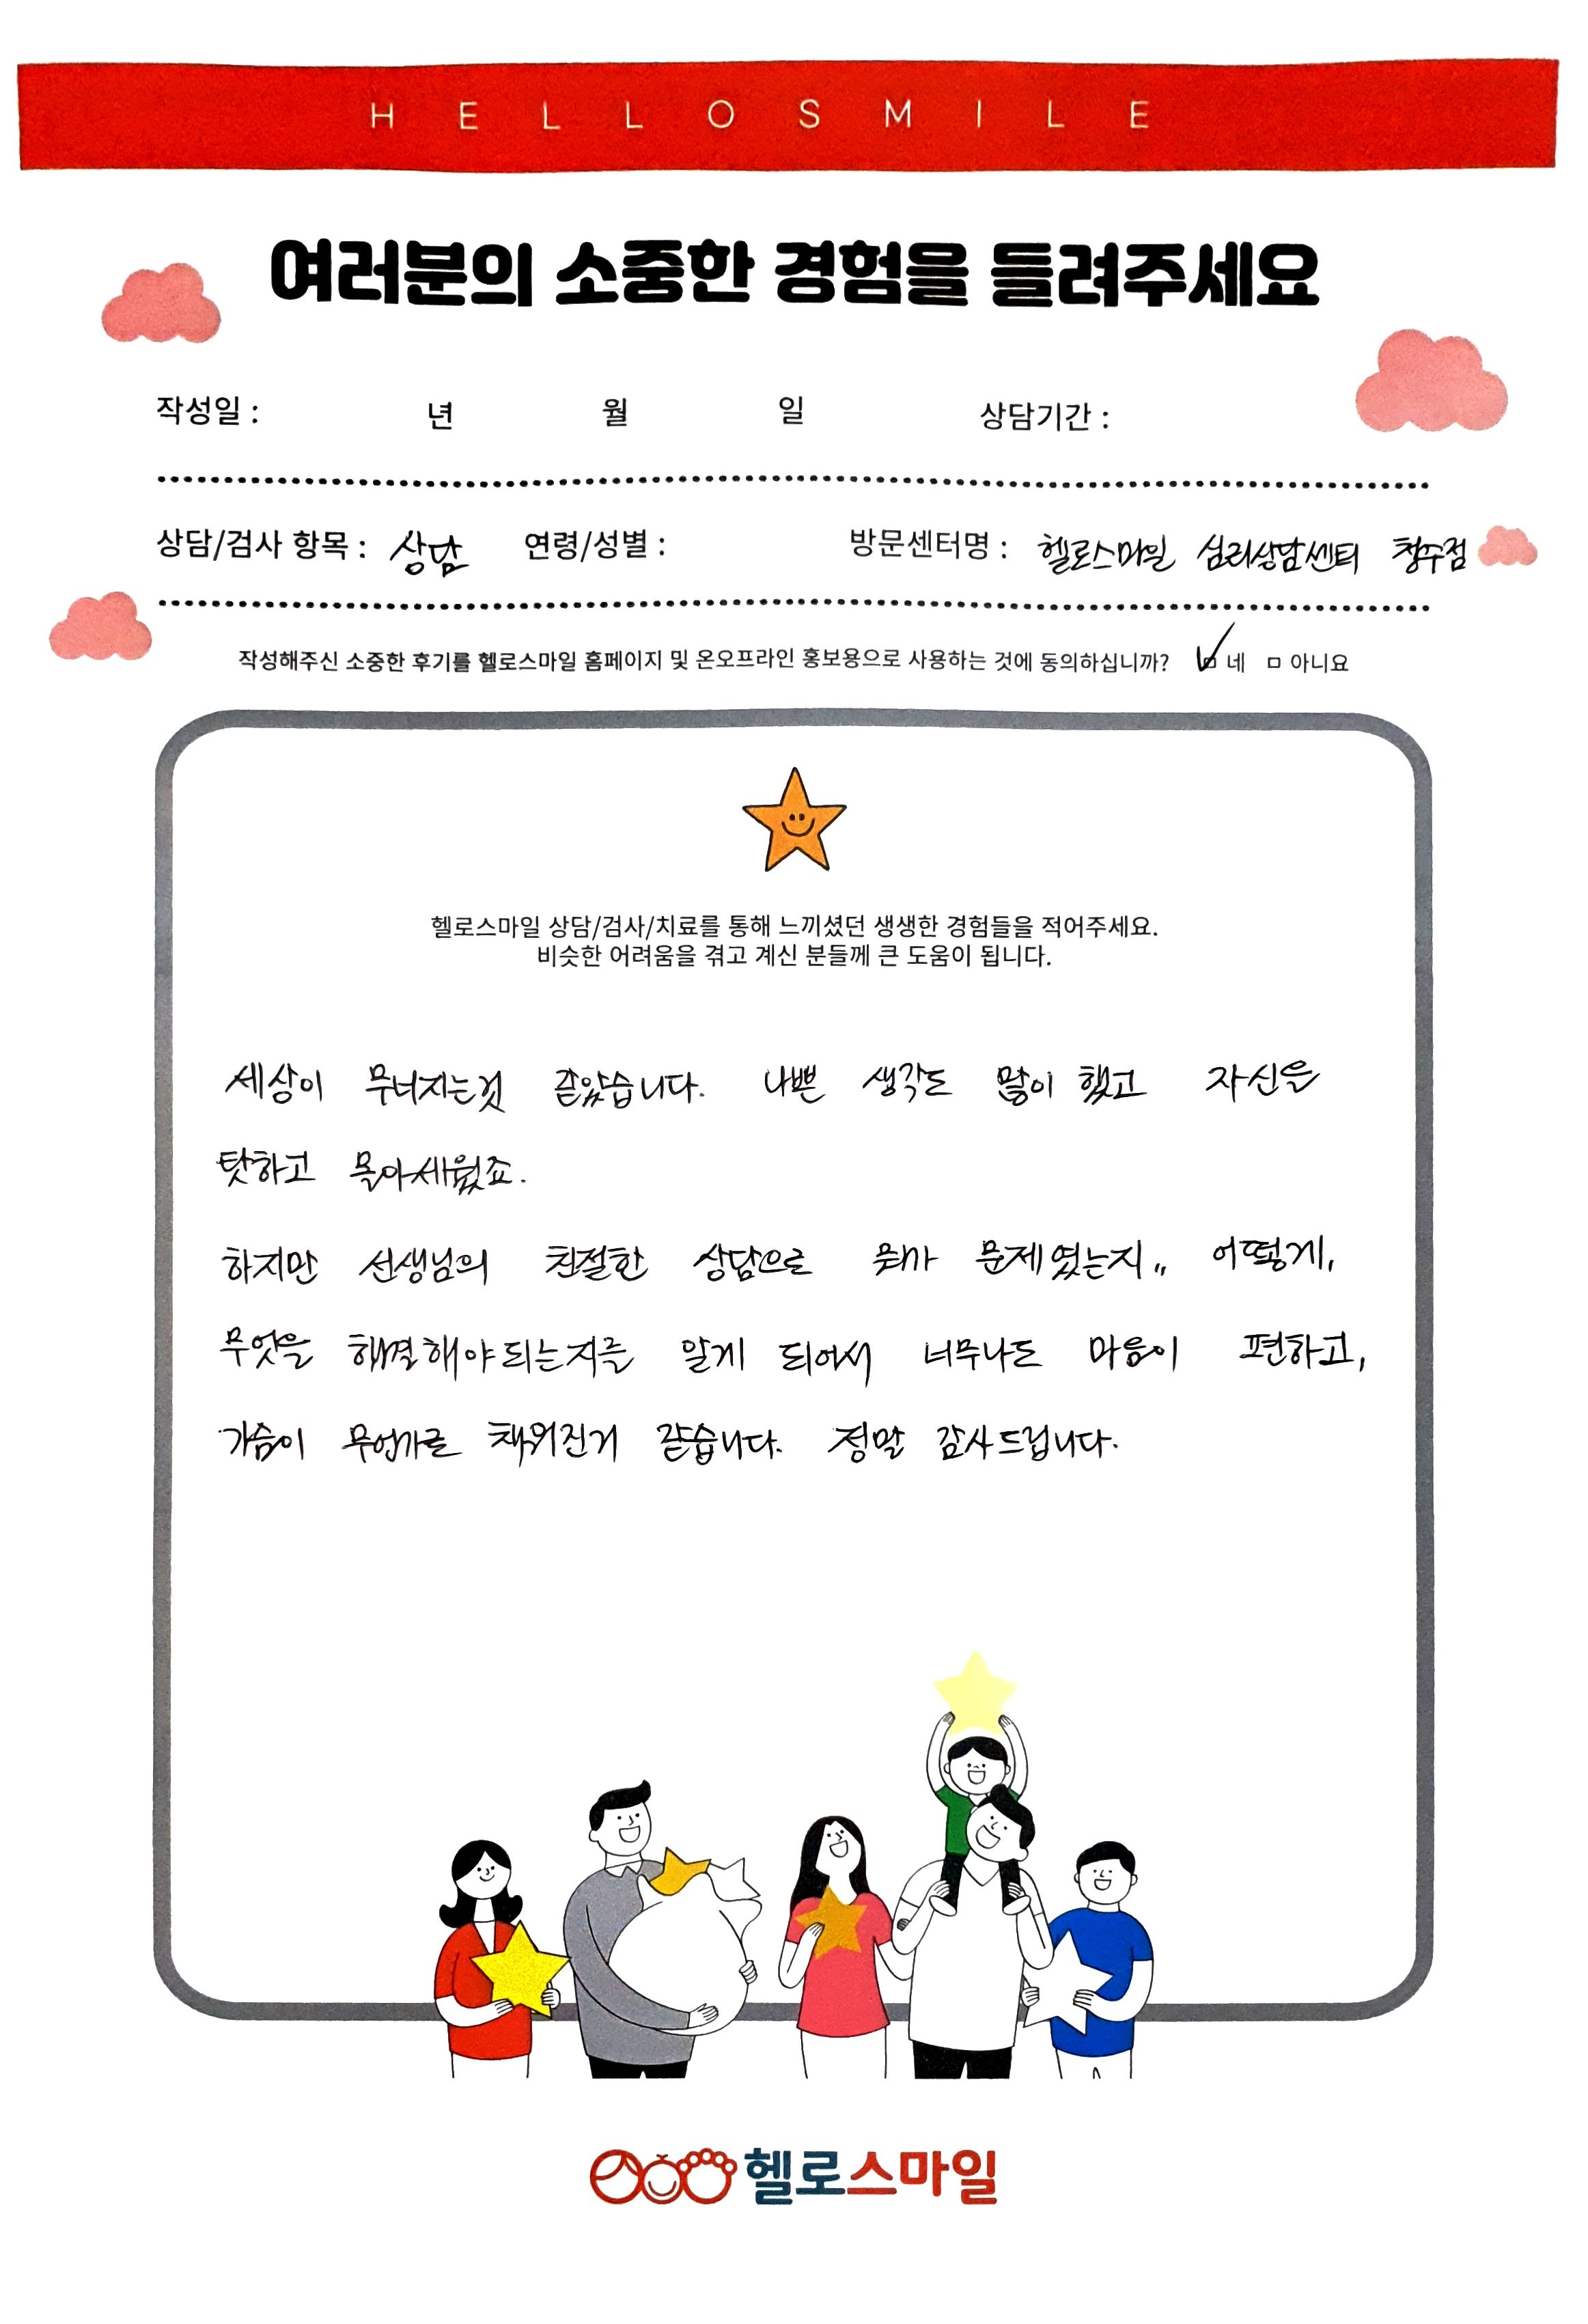 HELLOSMILE
여러분의 소중한 경험을 들려주세요
작성일 : 년 월 일 상담기간 :
상담/검사 항목 : 상담 연령/성별 : 방문센터명 : 헬로스마일 심리상담센터 청수점
작성해주신 소중한 후기를 헬로스마일 홈페이지 및 온오프라인 홍보용으로 사용하는 것에 동의하십니까? ☑ 네 ☐ 아니요
헬로스마일 상담/검사/치료를 통해 느끼셨던 생생한 경험들을 적어주세요.
비슷한 어려움을 겪고 계신 분들께 큰 도움이 됩니다.
세상이 무너지는것 같았습니다. 나쁜 생각도 많이 했고 자신을
탓하고 몰아세웠죠.
하지만 선생님의 친절한 상담으로 뭐가 문제였는지,, 어떻게,
무엇을 해결해야되는지를 알게 되어서 너무나도 마음이 편하고,
가슴이 무언가로 채워진거 같습니다. 정말 감사드립니다.
헬로스마일